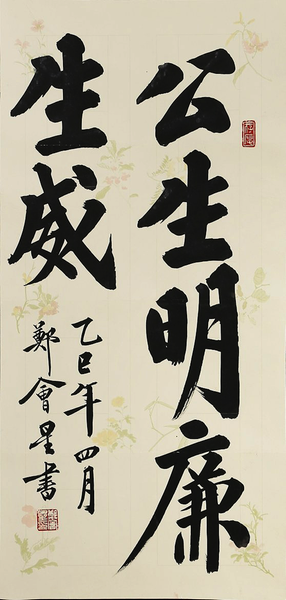 公生明廉
生威
乙巳年四月
鄭會星書